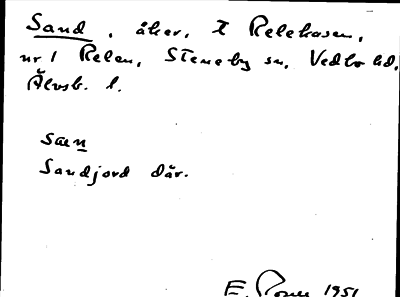 Sand, åker, t Relekasen,
nr 1 Relen, Steneby sn, Vedbo hd,
Älvsb. l.
San
Sandjord där.
E. 1951